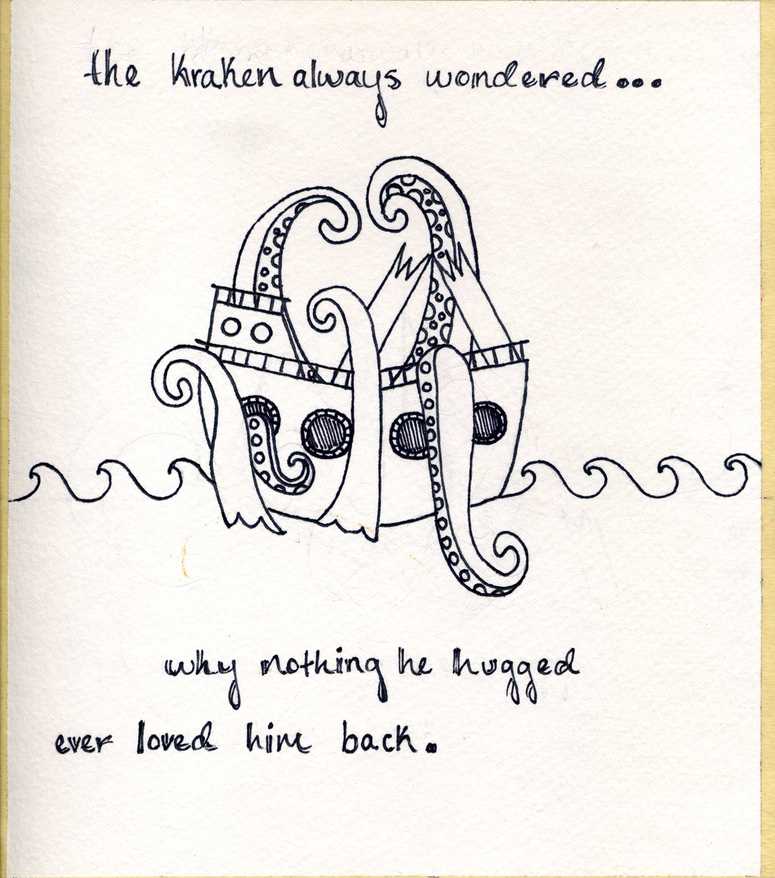 the kraken always wondered...
why nothing he hugged
ever loved him back.